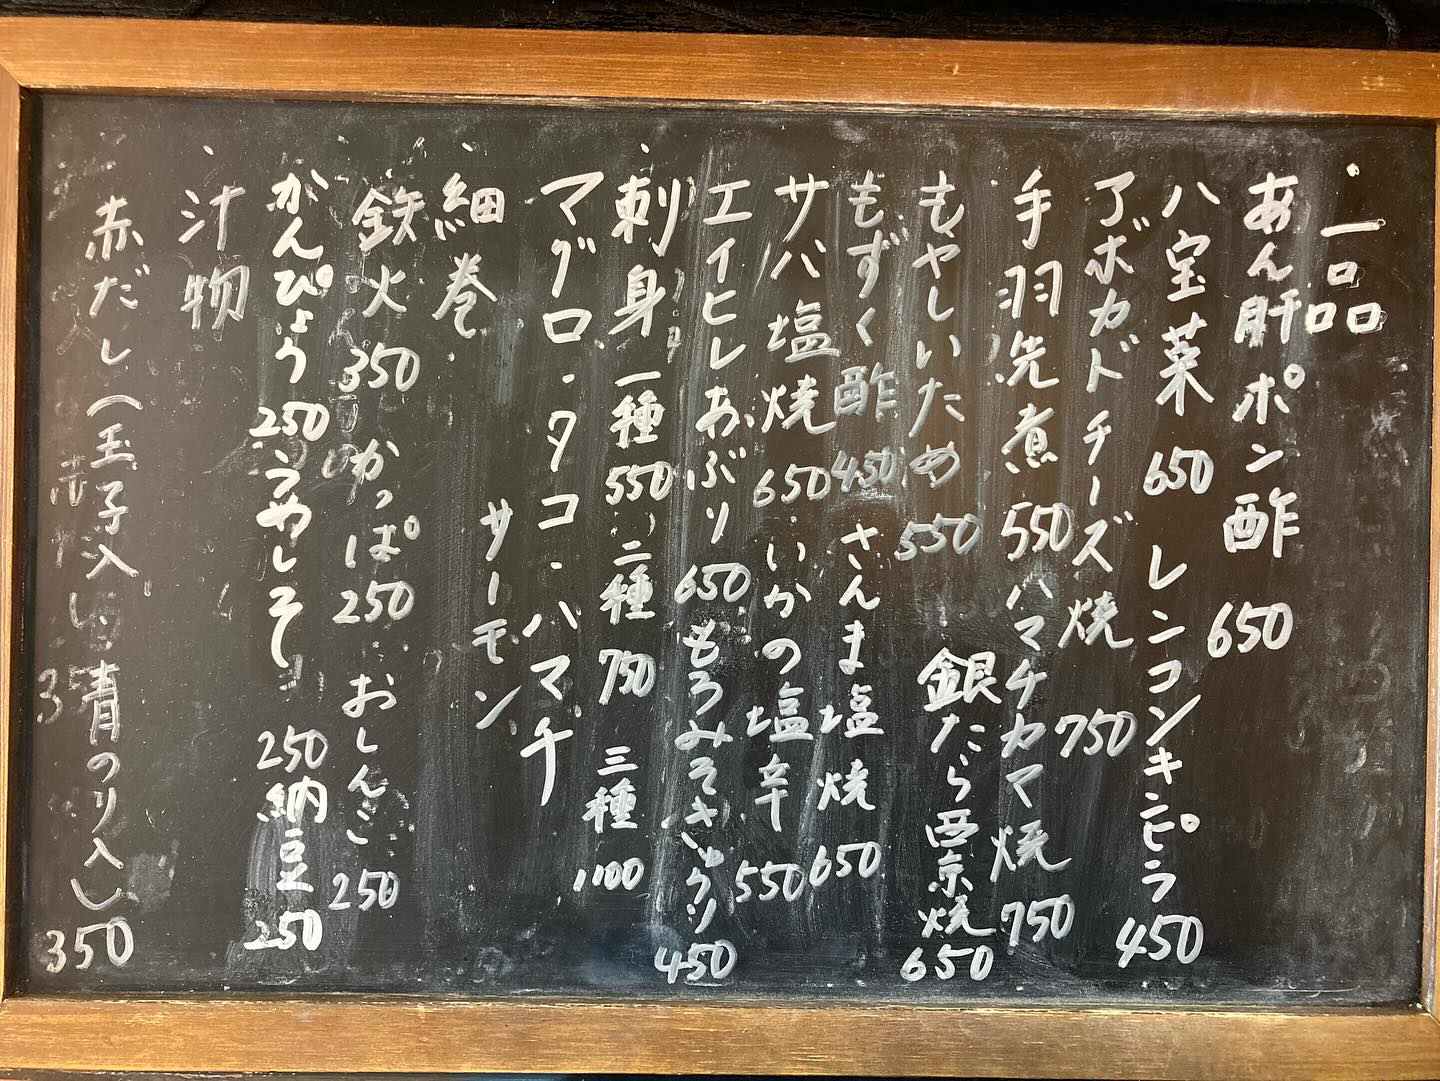 ・一品
あん肝ポン酢 650
八宝菜 650 レンコンキンピラ 450
アボカドチーズ焼 750
手羽先煮 550 ハマチカマ焼 750
もやしいため 550 銀たら西京焼 650
もずく酢 450 さんま塩焼 650
サバ塩焼 650 いかの塩辛 550
エイヒレあぶり 650 もろみそきゅうり 450
・刺身 一種 550 二種 750 三種 1100
マグロ・タコ・ハマチ
サーモン
・細巻
鉄火 350 かっぱ 250 おしんこ 250
かんぴょう 250 うめしそ 250 納豆 250
・汁物
赤だし(玉子入 青のり入) 350